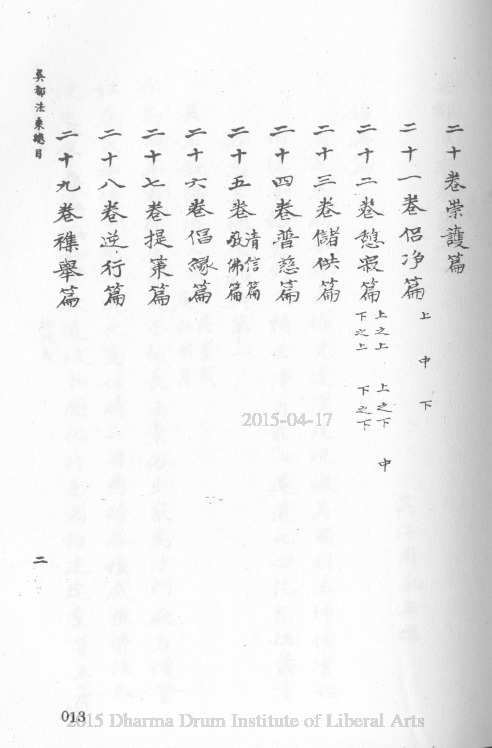 二十卷崇護篇
二十一卷侶净篇 上 中 下
二十二卷憩寂篇 上之上 上之下 中 下之上 下之下
二十三卷儲供篇
二十四卷普慈篇
二十五卷清信篇 敬佛篇
二十六卷倡緣篇
二十七卷提策篇
二十八卷逆行篇
二十九卷襍舉篇
吳都法乘總目
二
013
2015-04-17
2015 Dharma Drum Institute of Liberal Arts